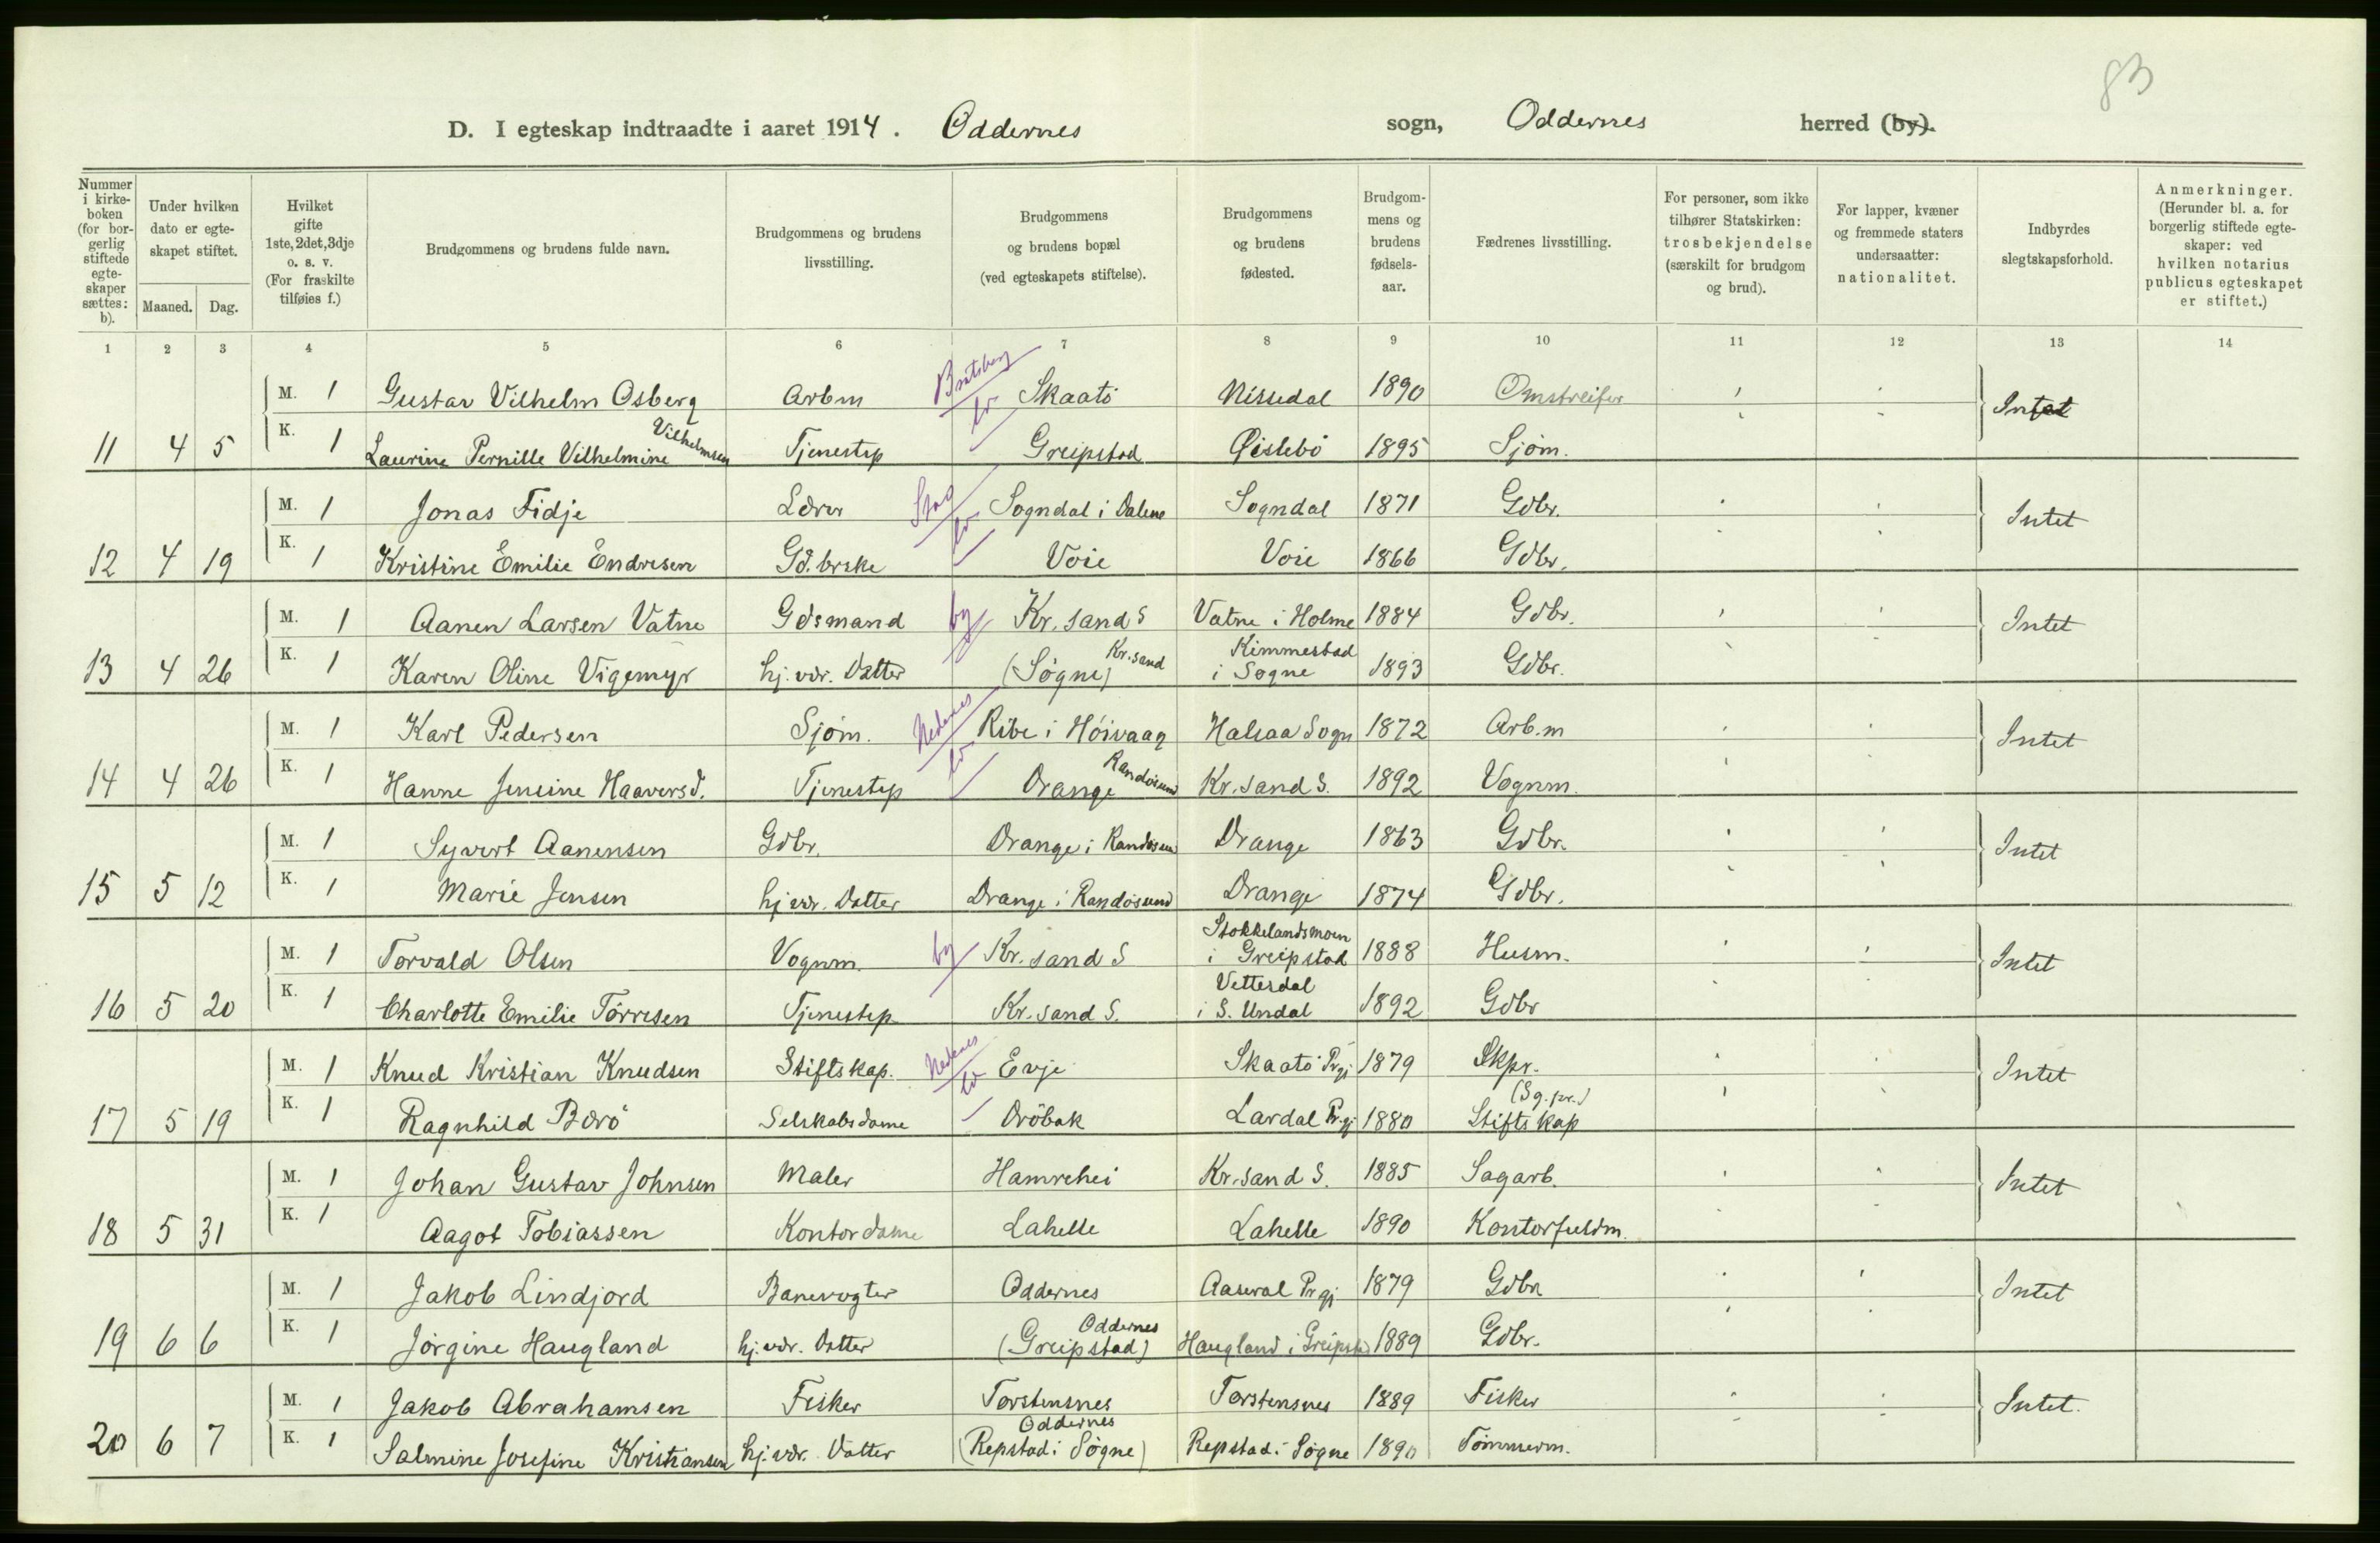 83
D. I egteskap indtraadte i aaret 1914. Oddernes sogn, Oddernes herred (by).
Nummer i kirke-boken (for bor-gerlig stiftede egte-skaper sættes: b).
Under hvilken dato er egte-skapet stiftet.
Maaned. Dag.
Hvilket gifte 1ste, 2det, 3dje o. s. v. (For fraskilte tilføies f.)
Brudgommens og brudens fulde navn.
Brudgommens og brudens livsstilling.
Brudgommens og brudens bopæl (ved egteskapets stiftelse).
Brudgommens og brudens fødested.
Brudgom-mens og brudens fødsels-aar.
Fædrenes livsstilling.
For personer, som ikke tilhører Statskirken: trosbekjendelse (særskilt for brudgom og brud).
For lapper, kvæner og fremmede staters undersaatter: nationalitet.
Indbyrdes slegtskapsforhold.
Anmerkninger. (Herunder bl. a. for borgerlig stiftede egte-skaper: ved hvilken notarius publicus egteskapet er stiftet.)
1 2 3 4 5 6 7 8 9 10 11 12 13 14
M. 1 Gustav Vilhelm Osberg Arbm Bratsberg Skaatö Nissedal 1890 Omstreifer Intet
11 4 5 K. 1 Laurine Pernille Vilhelmine Vilhelmsen Tjenestep Greipstad Øislebö 1895 Sjøm.
M. 1 Jonas Fidje Lærer Stav Sogndal i Dalene Sogndal 1871 Gdbr. Intet
12 4 19 K. 1 Kristine Emilie Endresen Gd.brske Voie Voie 1866 Gdbr.
M. 1 Aanen Larsen Vatne Gdsmand by Kr.sand S Vatne i Holme 1884 Gdbr. Intet
13 4 26 K. 1 Karen Oline Vigemyr hj.vær. Datter (Søgne) Kr.sand Kimmestad i Søgne 1893 Gdbr.
M. 1 Karl Pedersen Sjøm. Nedenes Ribe i Höivaag Halsaa Sogn 1872 Arb.m Intet
14 4 26 K. 1 Hanne Jensine Haaversd. Tjenestep Drange Randösund Kr.sand S. 1892 Vognm.
M. 1 Syvert Aanensen Gdbr. Drange i Randösund Drange 1863 Gdbr. Intet
15 5 12 K. 1 Marie Jensen hj.vær. Datter Drange i Randösund Drange 1874 Gdbr.
M. 1 Torvald Olsen Vognm. by Kr.sand S Stokkelandsmoen i Greipstad 1888 Husm. Intet
16 5 20 K. 1 Charlotte Emilie Törresen Tjenestep Kr.sand S. Vettesdal i S. Undal 1892 Gdbr
M. 1 Knud Kristian Knudsen Stiftskap. Nedenes Evje Skaatö Prgj 1879 Skpr. Intet
17 5 19 K. 1 Ragnhild Bærö Selskabsdame Dröbak Lardal Prgj 1880 (Sg.pr.) Stiftskap
M. 1 Johan Gustav Johnsen Maler Hamrehei Kr.sand S. 1885 Sagarb. Intet
18 5 31 K. 1 Aagot Tobiassen Kontordame Lahelle Lahelle 1890 Kontorfuldm.
M. 1 Jakob Lindjord Banevogter Oddernes Aaseral Prgj 1879 Gdbr Intet
19 6 6 K. 1 Jörgine Haugland hj.vær. Datter Oddernes (Greipstad) Haugland i Greipstad 1889 Gdbr.
M. 1 Jakob Abrahamsen Fisker Torstensnes Torstensnes 1889 Fisker Intet.
20 6 7 K. 1 Salmine Josefine Kristiansen hj.vær. Datter Oddernes (Repstad i Søgne) Repstad i Søgne 1890 Tömmerm.